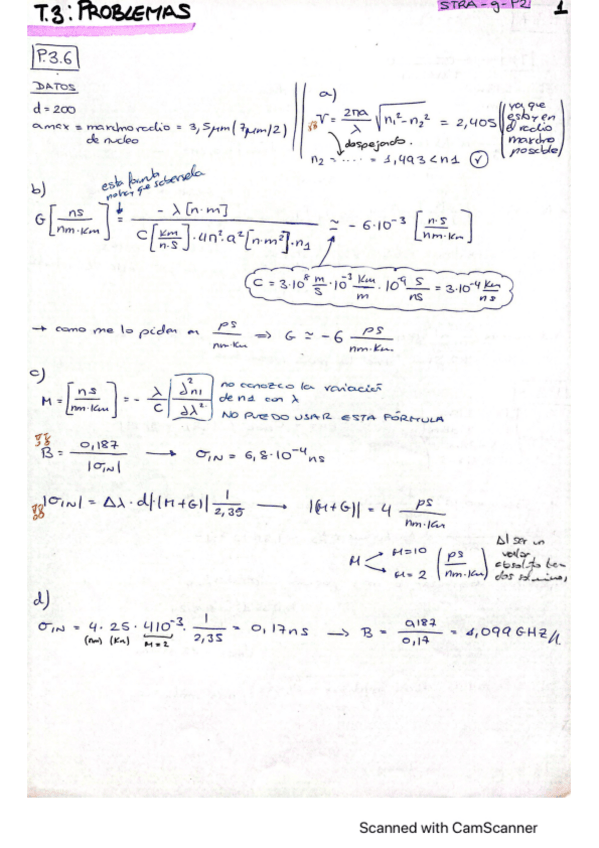 T.3: PROBLEMAS
STRA-g-P2
1
P.3.6
DATOS
d = 200
amax = máximo radio = 3,5μm (7μm/2)
de nucleo
a)
V = 2πa/λ √(n₁²-n₂²) = 2,405 (ya que estar en el radio máximo posible)
despejando.
n₂ = ..... = 1,493 < n1 ✓
b)
esta formula
G [ns/nm·km] = -λ [n·m] / C[km/n·s]·4π²·a²[n·m²]·n1 ≃ -6·10⁻³ [n·s/nm·km]
C = 3·10⁸ m/s · 10⁻³ km/m · 10⁻⁹ s/ns = 3·10⁻⁴ km/ns
→ como me lo piden en ps/nm·km ⇒ G ≃ -6 ps/nm·km
c)
M = [ns/nm·km] = - λ/C |d²n1/dλ²| no conozco la variación
de n1 con λ
NO PUEDO USAR ESTA FÓRMULA
B = 0,187/|σIN| → σIN = 6,8·10⁻⁴ ns
|σIN| = Δλ·d|(M+G)| 1/2,35 → |(M+G)| = 4 ps/nm·km
M M=10 M=2 (ps/nm·km)
Al ser un
valor
absoluto
dos
d)
σIN = 4·25·4·10⁻³· 1/2,35 = 0,17ns → B = 0,187/0,17 = 1,099 GHZ
(nm) (km) M=2
Scanned with CamScanner